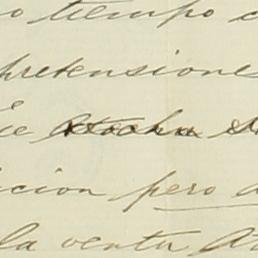 o tiempo
pretensione
ie
icion pero
la venta